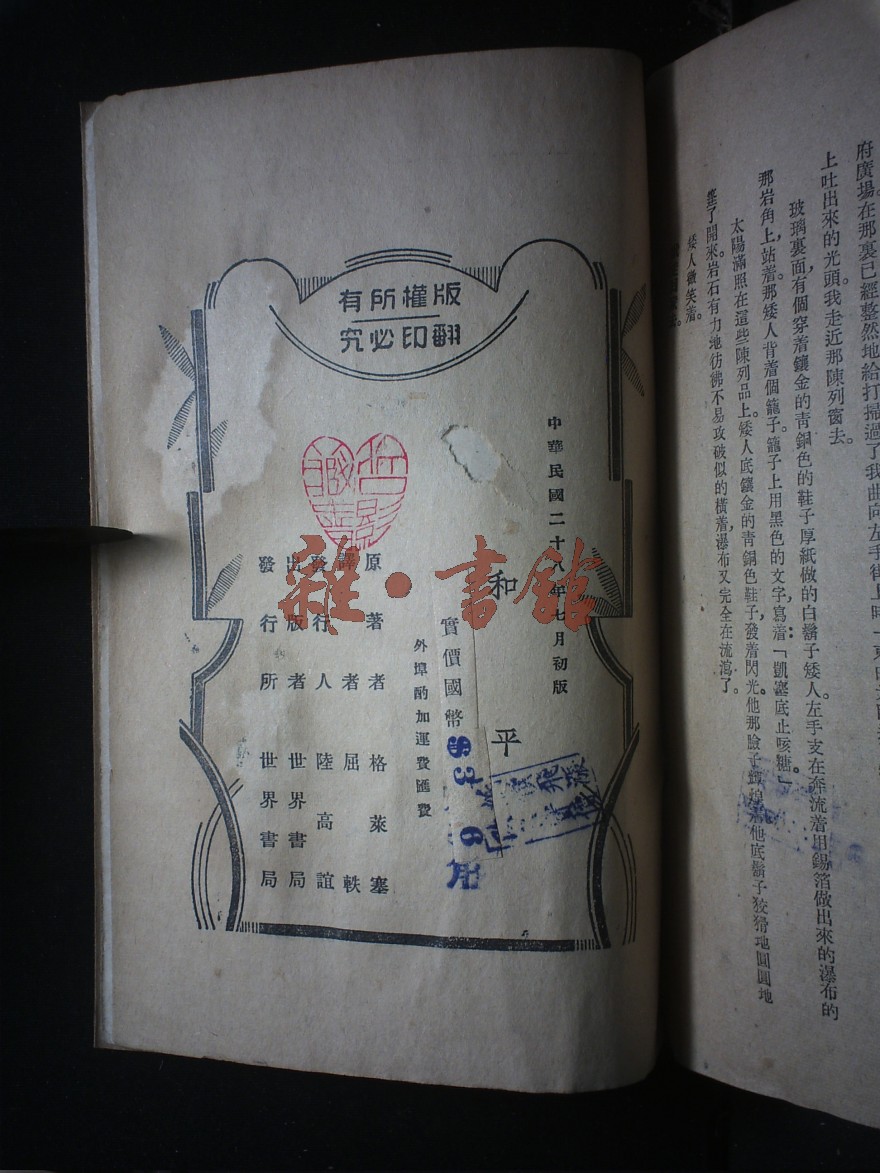 府廣場。在那裏已經整然地給打掃過了我曲向左手街上時一
上吐出來的光頭我走近那陳列窗去。
玻璃裏面有個穿着鑲金的靑銅色的鞋子厚紙做的白鬍子矮人。左手支在奔流着用錫箔做出來的瀑布的
那岩角上，站着那矮人背着個籠子籠子上用黑色的文字，寫着：「凱塞底止咳糖」。
太陽滿照在這些陳列品上。矮人底鑲金的靑銅色鞋子發着閃光。他那臉子輝煌着他底鬍子狡猾地圓圓地
開來。岩石有力地彷彿不易攻破似的橫着，瀑布又完全在流瀉了。
矮人微笑着。
版權所有
翻印必究
中華民國二十八年七月初版
和平
實價國幣
$3
6
外埠酌加運費匯費
原著者 格萊塞
譯者 屈軼
發行人 陸高誼
出版者 世界書局
發行所 世界書局
雜·書館